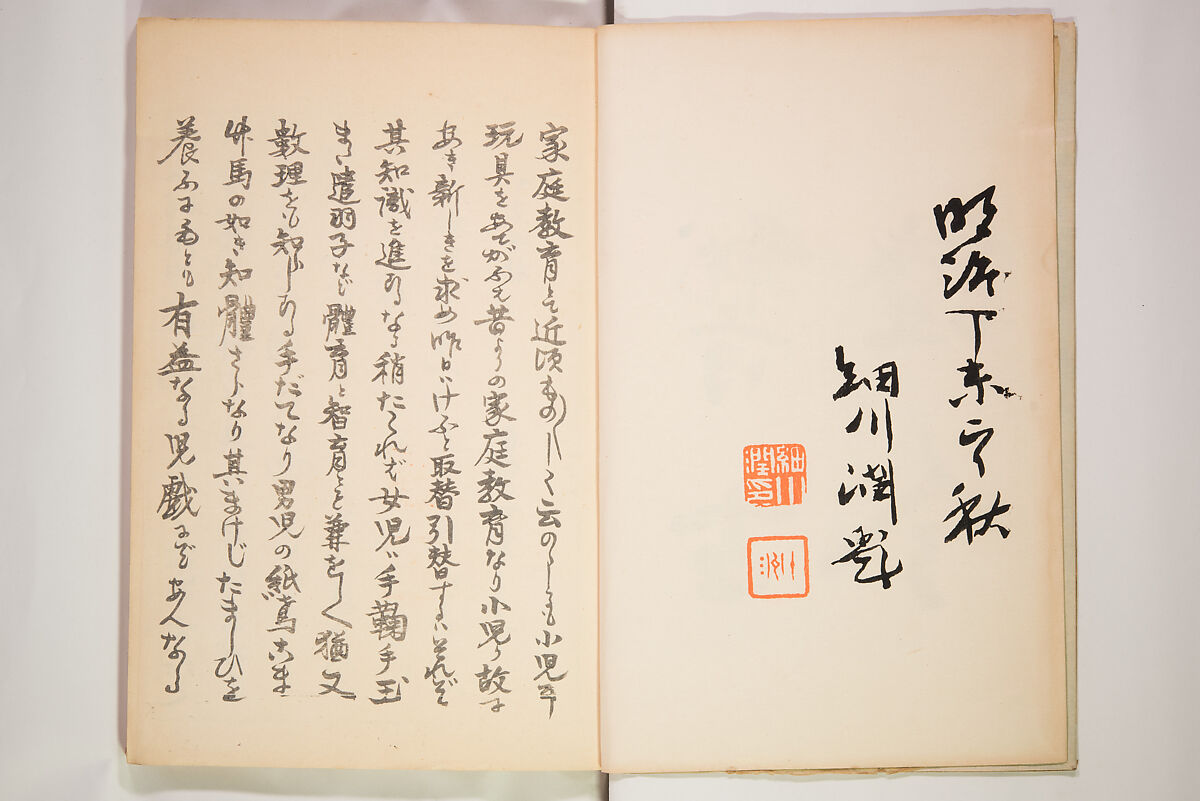 明治丁未之秋
細川潤
細川
潤印
家庭教育とて近頃ものしく云のゝしるも小児
玩具をあてがふも昔よりの家庭教育なり小児ら故に
あき新しきを求め昨日いけふと取替引替するいそれぞ
其知識を進むるなる稍たくれば女児ハ手鞠手玉
また遣羽子など體育と智育とを兼をしく猶又
數理をも知らしむる手だてなり男児の紙鳶こま
竹馬の如き知體さらなり其まけじたましひを
養ふにもとも有益なる児戯にぞあんなる